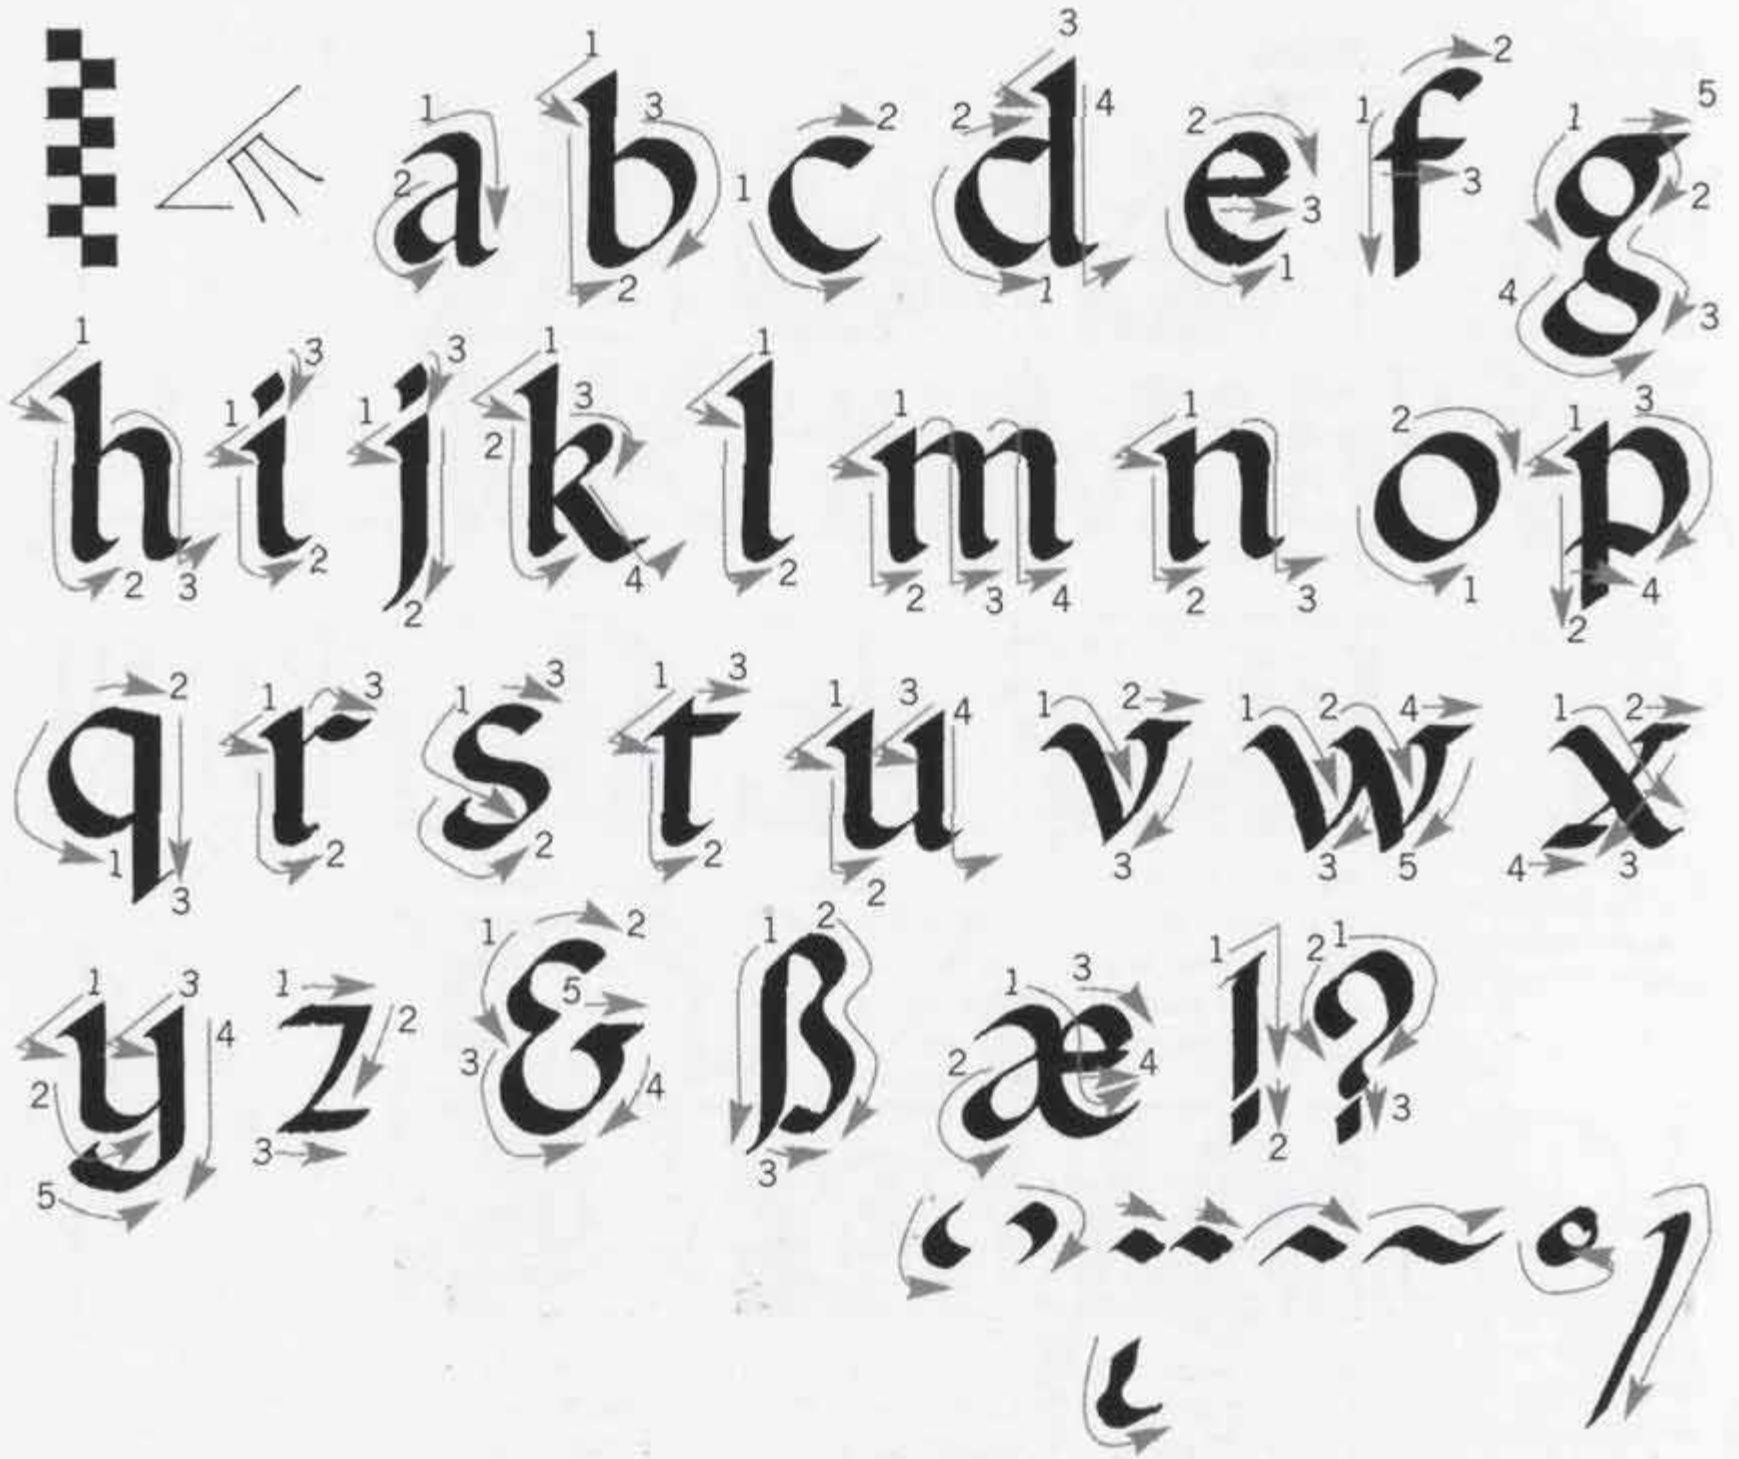 a b c d e f g
h i j k l m n o p
q r s t u v w x
y z & ß æ ! ?